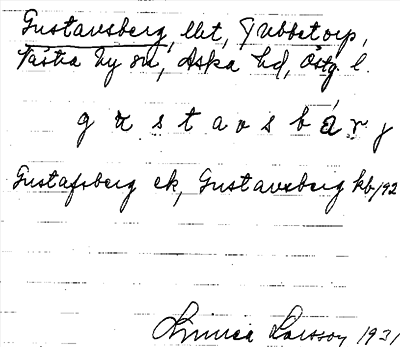 Gustavsberg, lht, Jubbetorp,
Västra Ny sn, Aska hd, Östg l.
g u s t a v s b ä r j
Gustafsberg ek, Gustavsberg kb/92
Linnea Larsson 1931